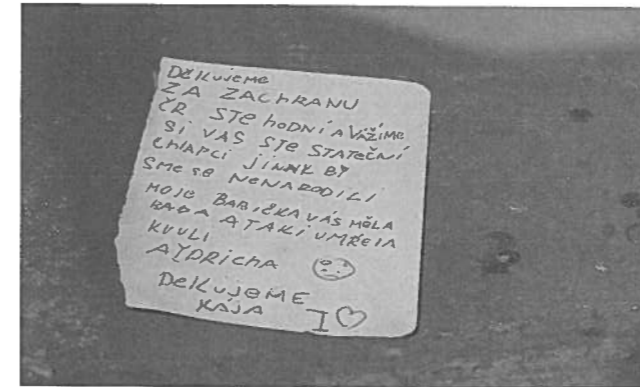 DĚKUJEME
ZA ZACHRANU
ČR STE hODNÍ A VÁŽIME
SI VÁS STE STATEČNÍ
CHLAPCI JINAK BY
SME SE NENARODILI
MOJE BABIČKA VÁS MĚLA
RADA A TAKI UMŘELA
KVULI
AYDRICHA
DĚKUJEME
KÁJA I ♡